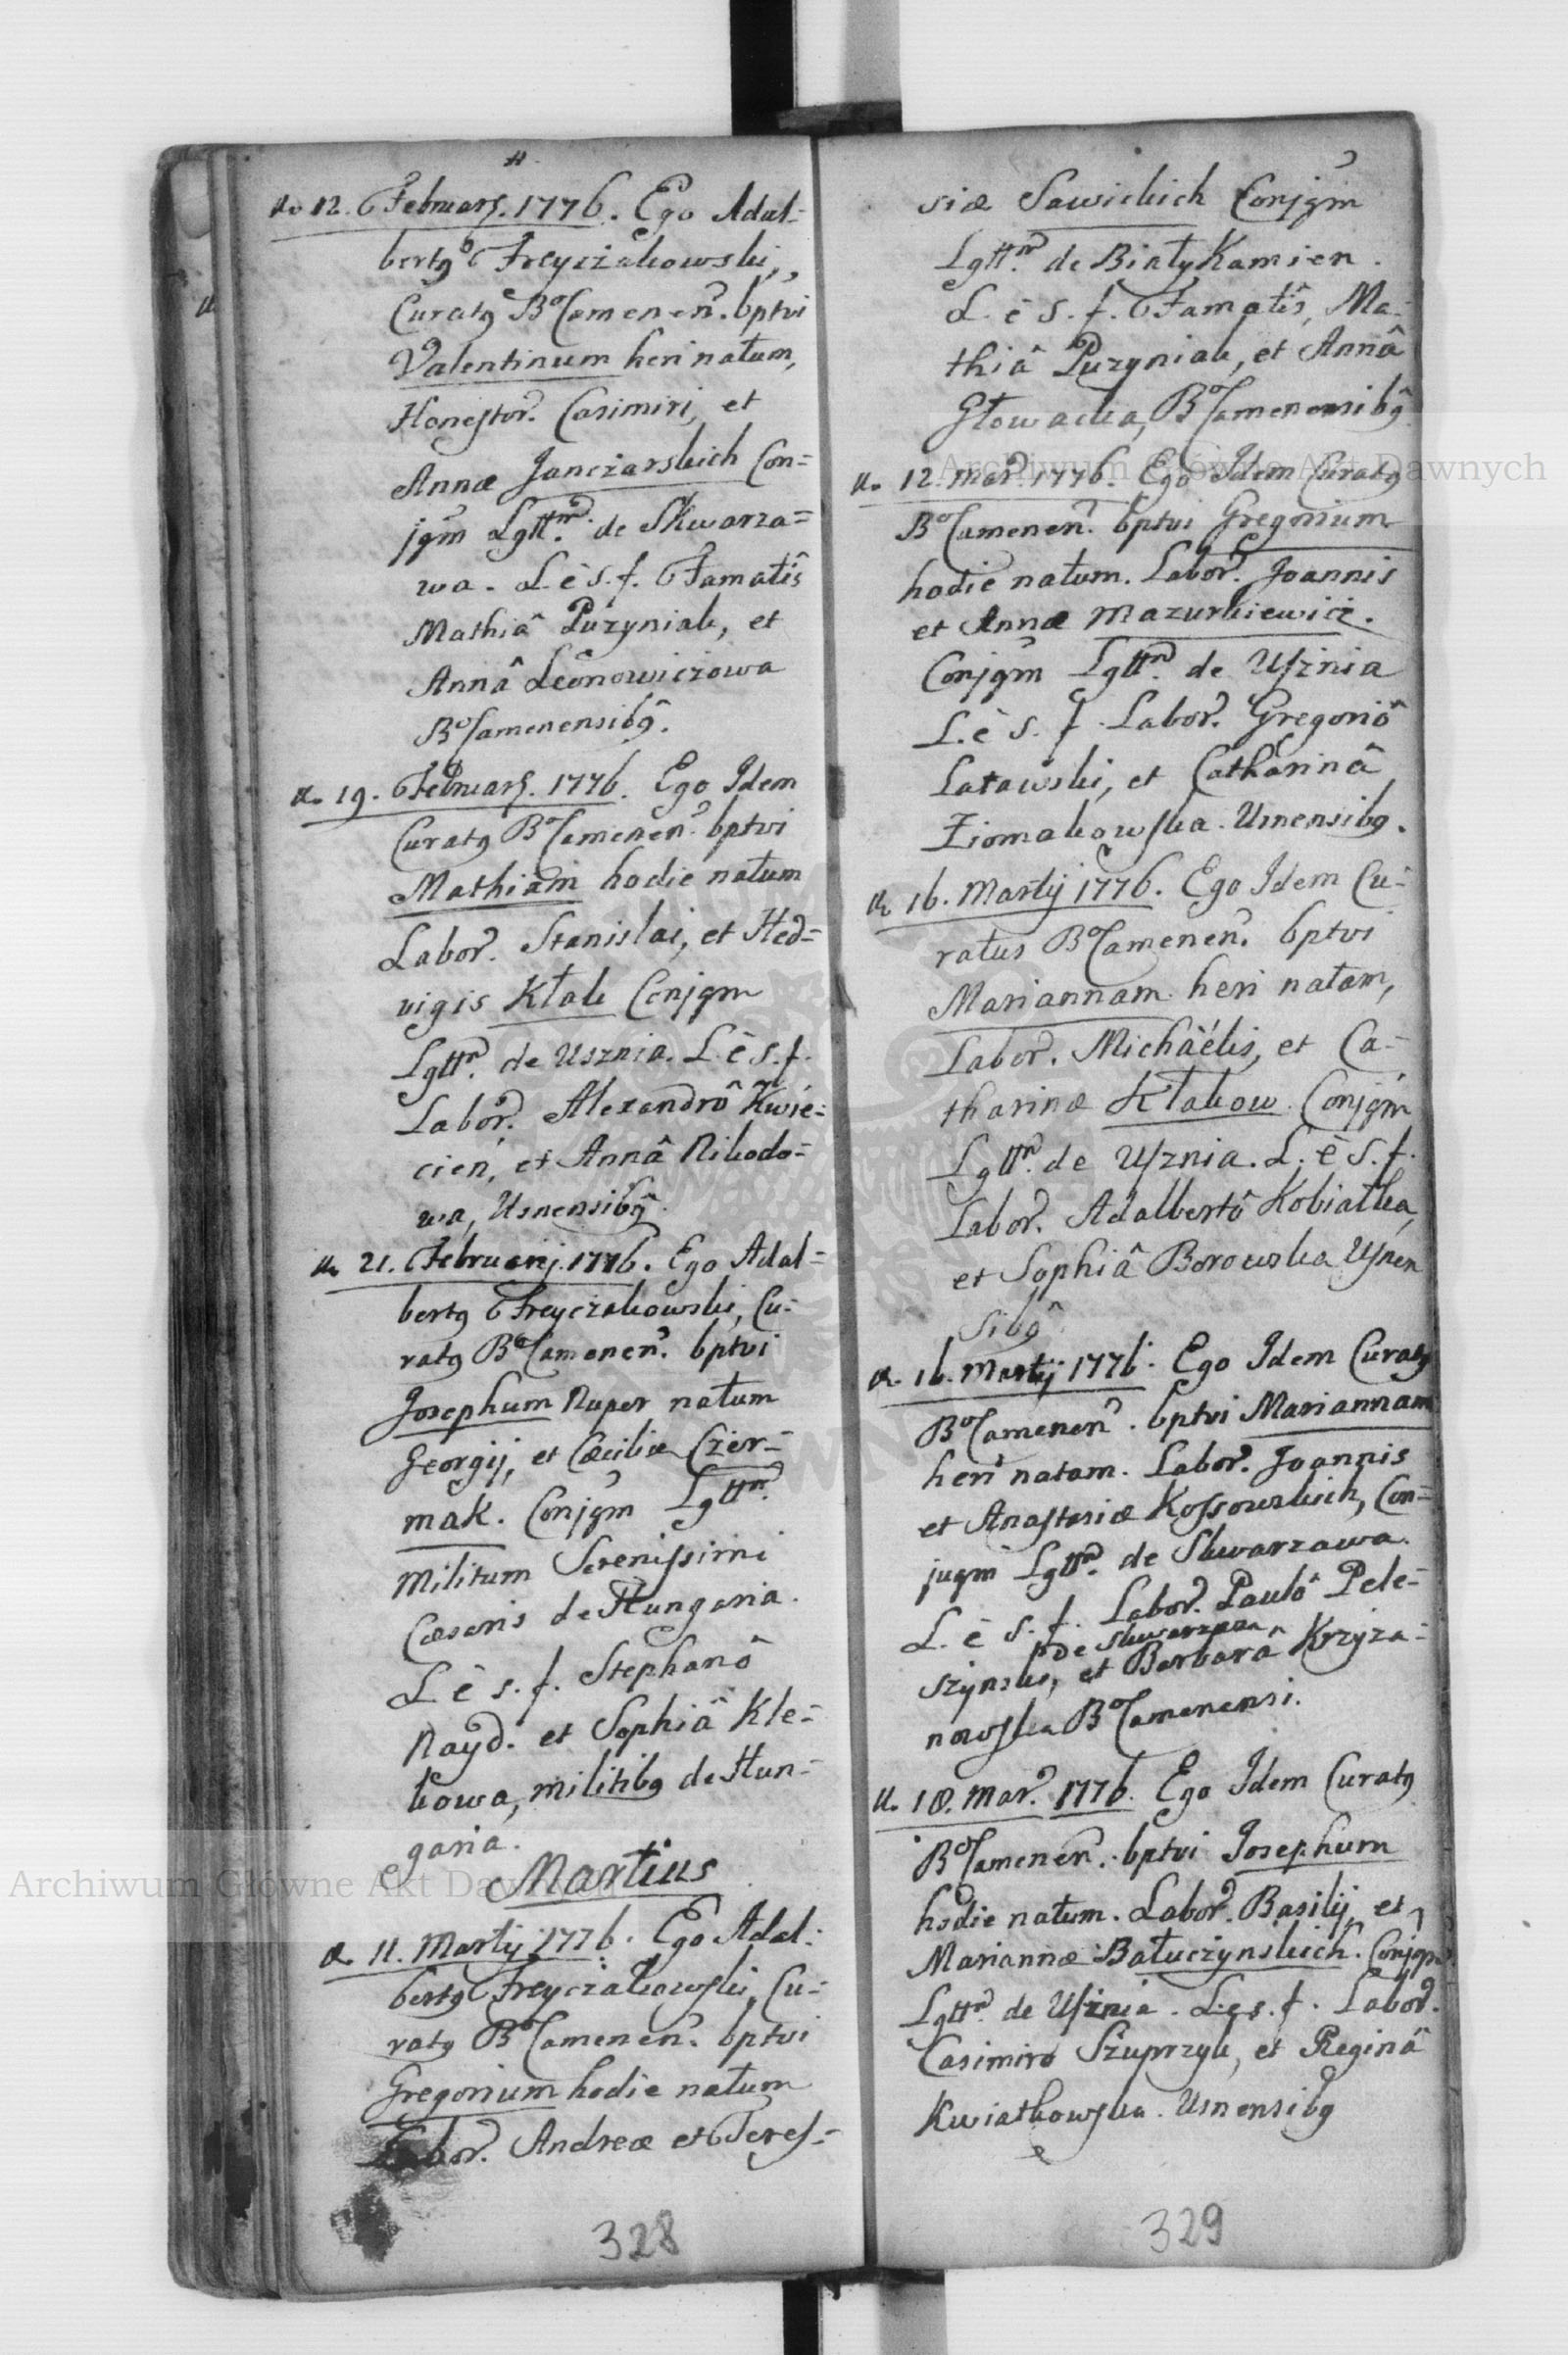 12. Februarj. 1776. Ego Adal=
bertg Freyczakowski,
Curatg BoCamenen. bptvi
Valentinum heri natum,
Honestor. Casimiri, et
Annæ Janczarskich Con=
jgm Lgttr. de Skwarza=
wa. L. è s. f. Famatîs
Mathiâ Puzyniak, et
Annâ Leonowiczowa
BoCamenensibg.
19. Februarj. 1776. Ego Idem
Curatg BoCamenen. bptvi
Mathiam hodie natum
Labor. Stanislai, et Hed=
vigis Kłak Conjgm
Lgttr. de Usznia. L. è s. f.
Labor. Alexandrô Kwie=
cien, et Annâ Nikodo=
wa, Usnensibg.
21. Februarij. 1776. Ego Adal=
bertg Freyczakowski, Cu=
ratg BoCamenen. bptvi
Josephum Nuper natum
Georgij, et Cæciliæ Czer=
mak. Conjgm Lgttr.
Militum Serenissimi
Cæsaris de Hungaria.
L è s. f. Stephanô
Nayd. et Sophiâ Kle=
kowa, militibg de Hun=
garia.
Martius
11. Martij 1776. Ego Adal=
bertg Freyczakowski, Cu=
ratg BoCamenen. bptvi
Gregorium hodie natum
Labor. Andreæ et Teres=
328
siæ Sawickich Conjgm
Lgttr. de BiałyKamien.
L. è s. f. Famatîs, Ma=
thiâ Puzyniak, et Annâ
Głowacka, BoCamenensibg
12. Mar. 1776. Ego Idem Curatg
BoCamenen. bptvi Gregorium
hodie natum. Labor. Joannis
et Annæ Mazurkiewicz.
Conjgm Lgttr. de Usznia
L. è s. f. Labor. Gregoriô
Latawski, et Catharinâ
Ziomakowska. Usnensibg.
16. Martij 1776. Ego Idem Cu=
ratus BoCamenen. bptvi
Mariannam heri natam,
Labor. Michaëlis, et Ca=
tharinæ Kłakow. Conjgm
Lgttr. de Usznia. L. è s. f.
Labor. Adalbertô Kobiałka,
et Sophiâ Borowska Usnen
sibg
16. Martij 1776. Ego Idem Curatg
BoCamenen. bptvi Mariannam
heri natam. Labor. Joannis
et Anastasiæ Kossowskich, Con=
jugm Lgttr. de Skwarzawa.
L. è s. f. Labor. Paulô Pele=
de Skwarzawa
szynski, et Barbarâ Krzyża=
nowska BoCamenensi.
18. Mar. 1776. Ego Idem Curatg
BoCamenen. bptvi Josephum
hodie natum. Labor. Basilij, et
Mariannæ Bałuczynskich. Conjgm
Lgttr. de Usznia. L. è s. f. Labor.
Casimiro Szuprzyk, et Reginâ
Kwiatkowska. Usnensibg
329
Archiwum Główne Akt Dawnych
Archiwum Główne Akt Dawnych